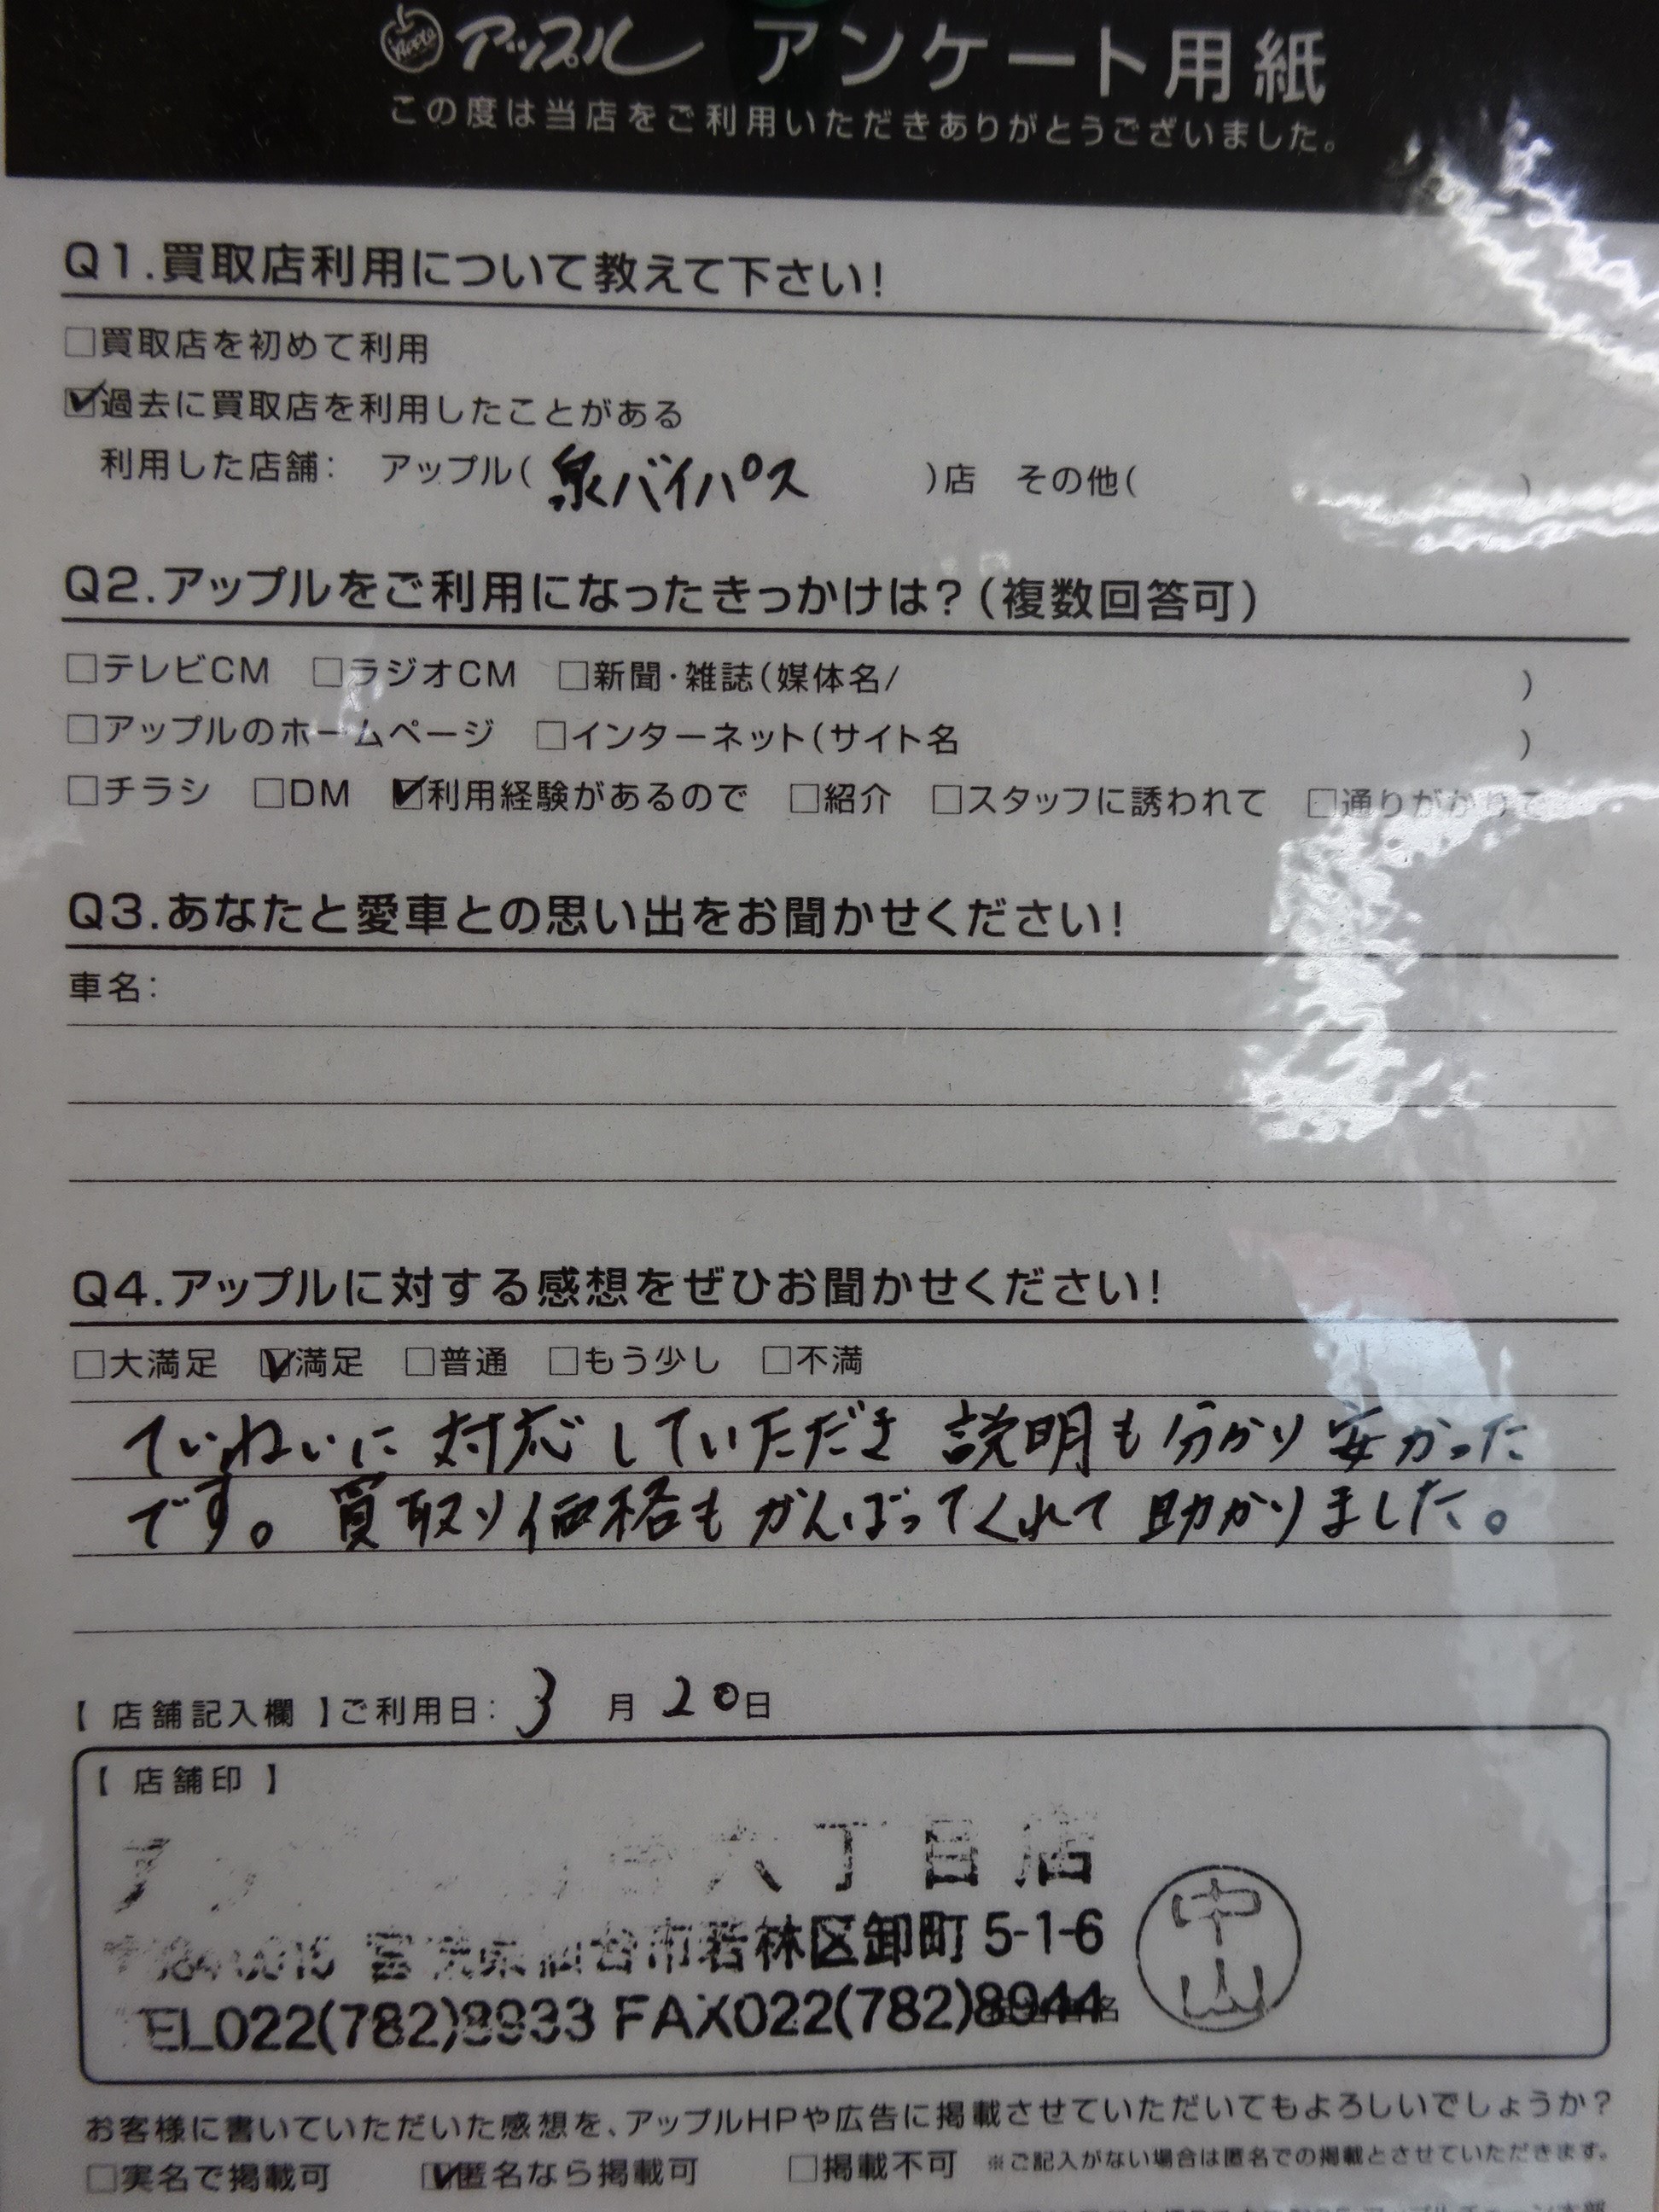 アップル アンケート用紙
この度は当店をご利用いただきありがとうございました。
Q1.買取店利用について教えて下さい!
□買取店を初めて利用
☑過去に買取店を利用したことがある
利用した店舗: アップル(泉バイパス)店 その他( )
Q2.アップルをご利用になったきっかけは?(複数回答可)
□テレビCM □ラジオCM □新聞・雑誌(媒体名/ )
□アップルのホームページ □インターネット(サイト名 )
□チラシ □DM ☑利用経験があるので □紹介 □スタッフに誘われて □通りがかりで
Q3.あなたと愛車との思い出をお聞かせください!
車名:
Q4.アップルに対する感想をぜひお聞かせください!
□大満足 ☑満足 □普通 □もう少し □不満
ていねいに対応していただき 説明も分かり安かった
です。買取り価格もがんばってくれて助かりました。
【 店舗記入欄 】ご利用日: 3 月 20日
【 店舗印 】
六丁目店
宮城県仙台市若林区卸町 5-1-6
中山
TEL022(782)8933 FAX022(782)8944
お客様に書いていただいた感想を、アップルHPや広告に掲載させていただいてもよろしいでしょうか?
□実名で掲載可 ☑匿名なら掲載可 □掲載不可 ※ご記入がない場合は匿名での掲載とさせていただきます。